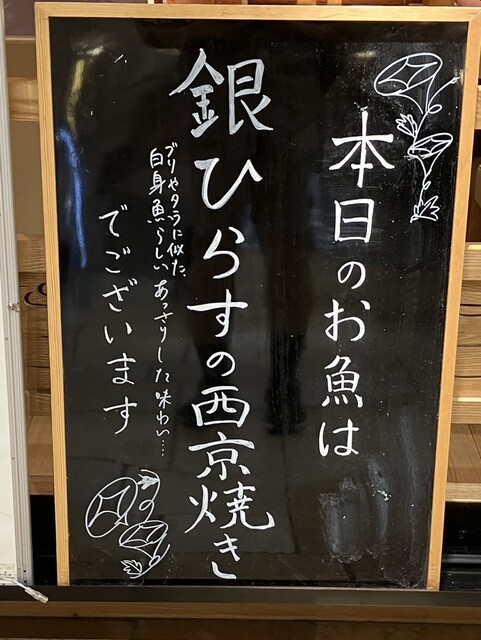 本日のお魚は
銀ひらすの西京焼き
ブリやタラに似た、
白身魚らしいあっさりした味わい…
でございます